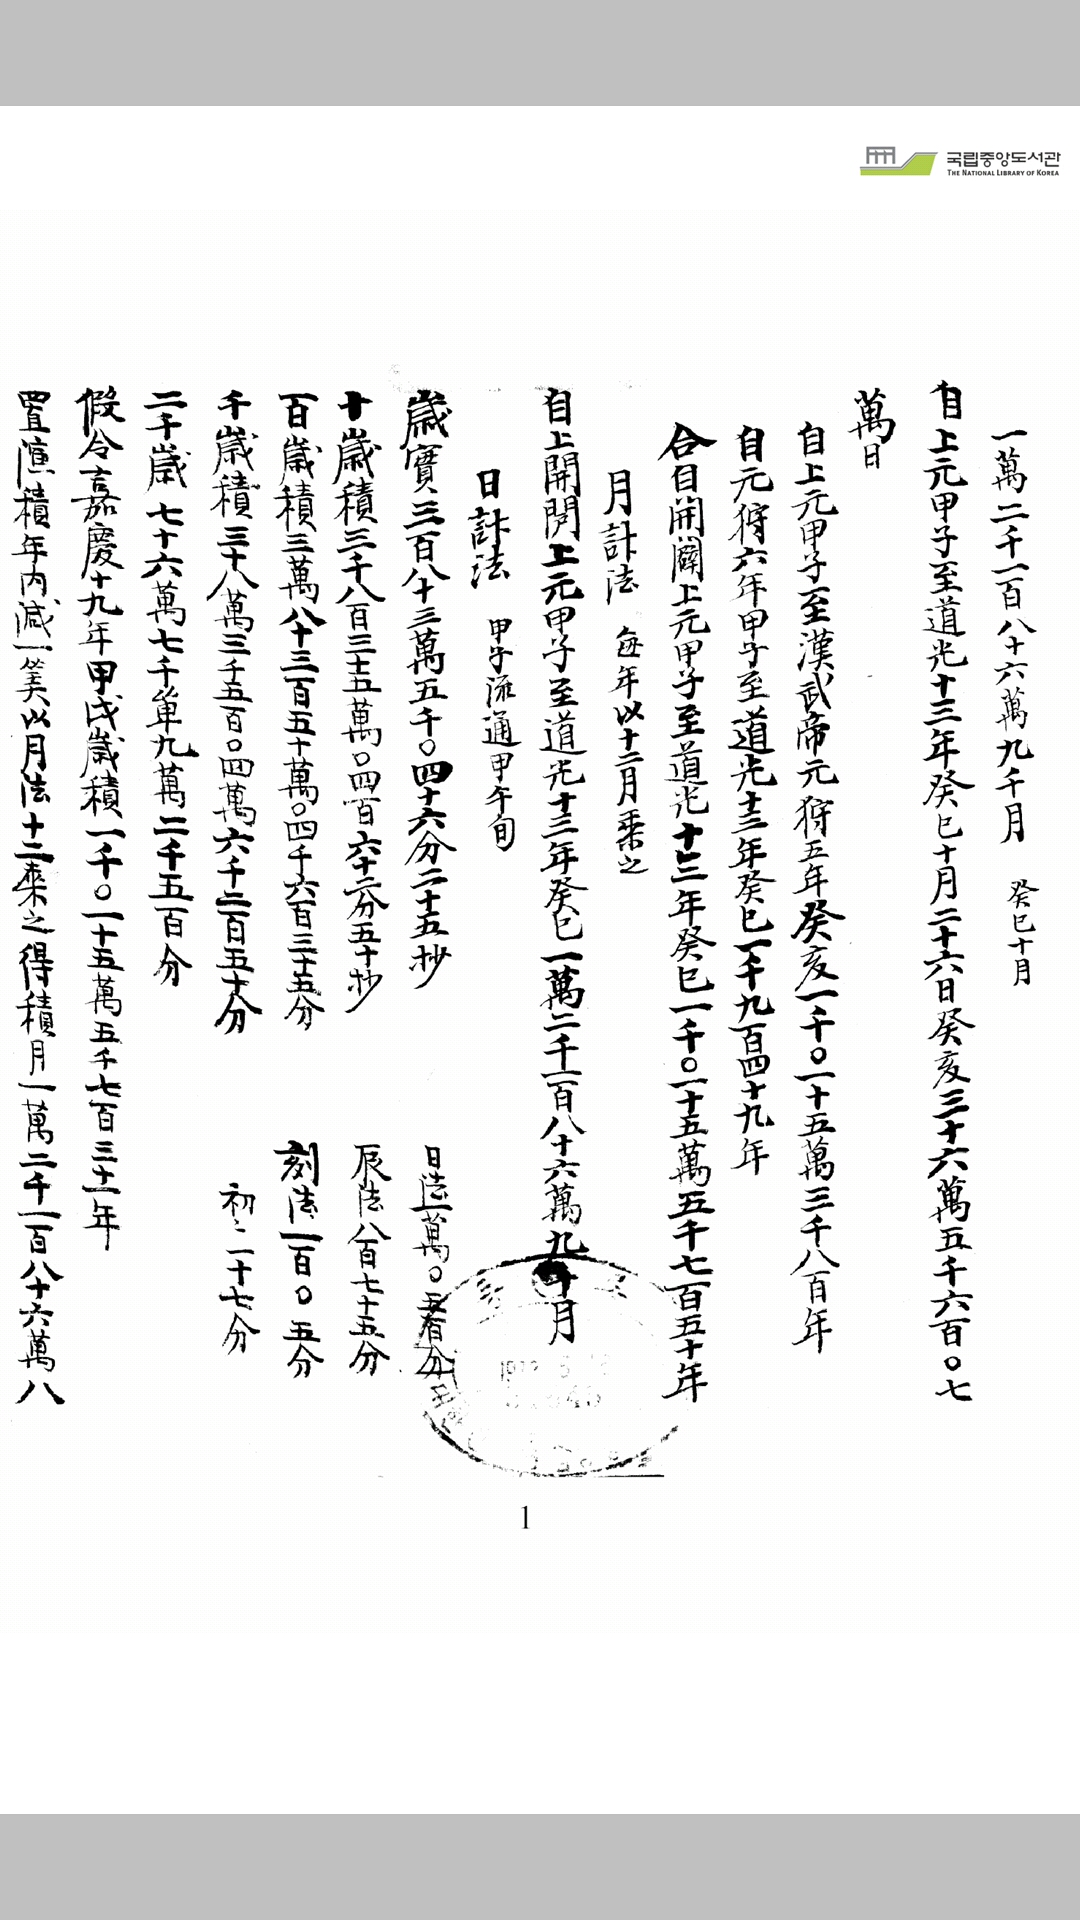 국립중앙도서관
THE NATIONAL LIBRARY OF KOREA
一萬二千一百八十六萬九千月 癸巳十月
自上元甲子至道光十三年癸巳十月二十六日癸亥三十六萬五千六百〇七
萬日
自上元甲子至漢武帝元狩五年癸亥一千〇一十五萬三千八百年
自元狩六年甲子至道光十三年癸巳一千九百四十九年
合自開闢上元甲子至道光十三年癸巳一千〇一十五萬五千七百五十年
月計法 每年以十二月乘之
自上開闢上元甲子至道光十三年癸巳一萬二千一百八十六萬九千月
日計法 甲子流通甲午旬
歲實三百八十三萬五千〇四十六分二十五抄 日法一萬〇五百分
十歲積三千八百三十五萬〇四百六十二分五十抄 辰法八百七十五分
百歲積三萬八十三百五十萬〇四千六百二十五分 刻法一百〇五分
千歲積三十八萬三千五百〇四萬六千二百五十分 初〻二十七分
二千歲七十六萬七千單九萬二千五百分
假令嘉慶十九年甲戌歲積一千〇一十五萬五千七百三十一年
置演積年內減一筭以月法十二乘之得積月一萬二千一百八十六萬八
1